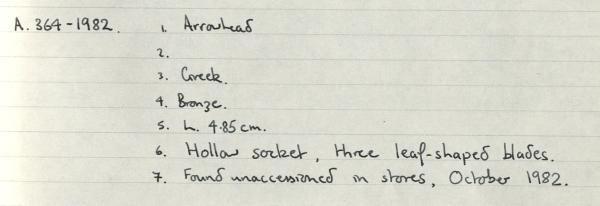 A. 364-1982. 1. Arrowhead
2.
3. Greek.
4. Bronze.
5. L. 4.85 cm.
6. Hollow socket, three leaf-shaped blades.
7. Found unaccessioned in stores, October 1982.